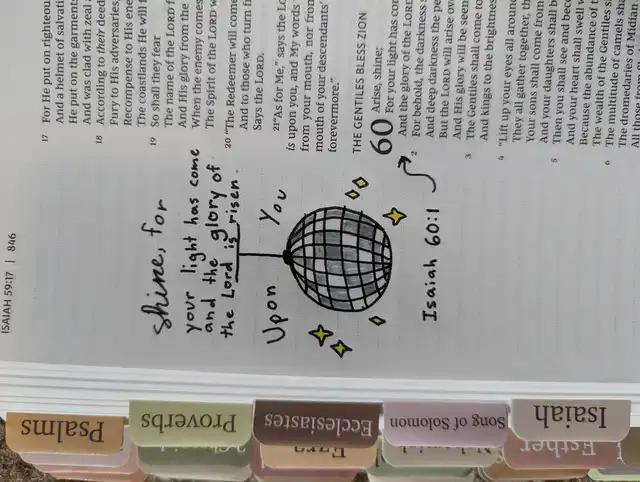 ISAIAH 59:17 | 846
17 For He put on righteou
And a helmet of salvati
He put on the garments
And was clad with zeal
18 According to their deed
Fury to His adversaries,
Recompense to His ene
The coastlands He will f
19 So shall they fear
The name of the LORD f
And His glory from the
When the enemy comes
The Spirit of the LORD w
20 "The Redeemer will come
And to those who turn fr
Says the LORD.
21 "As for Me," says the LO
is upon you, and My words
from your mouth, nor from
mouth of your descendants'
forevermore."
THE GENTILES BLESS ZION
60 Arise, shine;
For your light has com
And the glory of the LORD
2 For behold, the darkness
And deep darkness the pe
But the LORD will arise ove
And His glory will be seen
3 The Gentiles shall come to
And kings to the brightness
4 "Lift up your eyes all around
They all gather together, th
Your sons shall come from
And your daughters shall b
5 Then you shall see and bec
And your heart shall swell w
Because the abundance of t
The wealth of the Gentiles s
6 The multitude of camels sha
The dromedaries of Midian
shine, for
your light has come
and the glory of
the Lord is risen.
Upon You
Isaiah 60:1
Psalms
Proverbs
Ecclesiastes
Song of Solomon
Isaiah
Ezra
Nehemiah
Esther